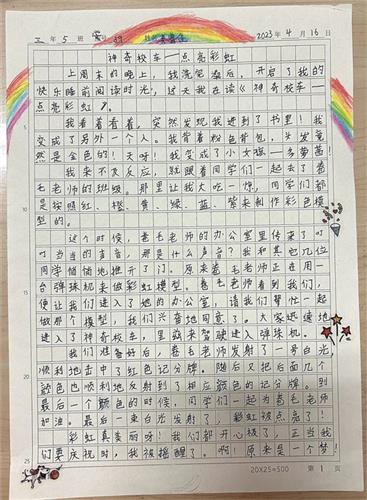 三年5班 2023年4月16日
神奇校车一点亮彩虹
上周末的晚上,我洗完澡后,开启了我的
快乐睡前阅读时光,这天我在读《神奇校车一
点亮彩虹》。
我看着看着,突然发现我进到了书里!我
变成了另外一个人。我背着粉色背包,头发竟
然是金色的!天呀!我变成了小女孩一多萝茜!
我来不及反应,就跟着同学们一起去了卷
毛老师的班级。那里让我大吃一惊,同学们都
是按照红、橙、黄、绿、蓝、紫来制作彩色模
型的。
这个时候,卷毛老师的办公室里传来了叮
叮当当的声音,那是什么声音?我和其它几位
同学悄悄地推开了门。原来卷毛老师正在用一
台弹珠机来做彩虹模型。卷毛老师看到我们,
便让我们进入了她的办公室,请我们帮忙一起
做那个模型,我们兴奋地同意了。大家迅速地
进入了神奇校车,里 来驾驶进入弹珠机。
我们准备好后,卷毛老师发射了一号白光,
顺利地击中了红色记分牌。随后又把后面几个
颜色也顺利地反射到了相应颜色的记分牌。到
最后一个颜色的时候,同学们一起为卷毛老师
加油。最后一束白光发射了,彩虹被点亮了!
彩虹真美丽呀!我们都开心极了,正当我
们要庆祝时,我被摇醒了。啊!原来是一个梦!
20X25=500 第1页